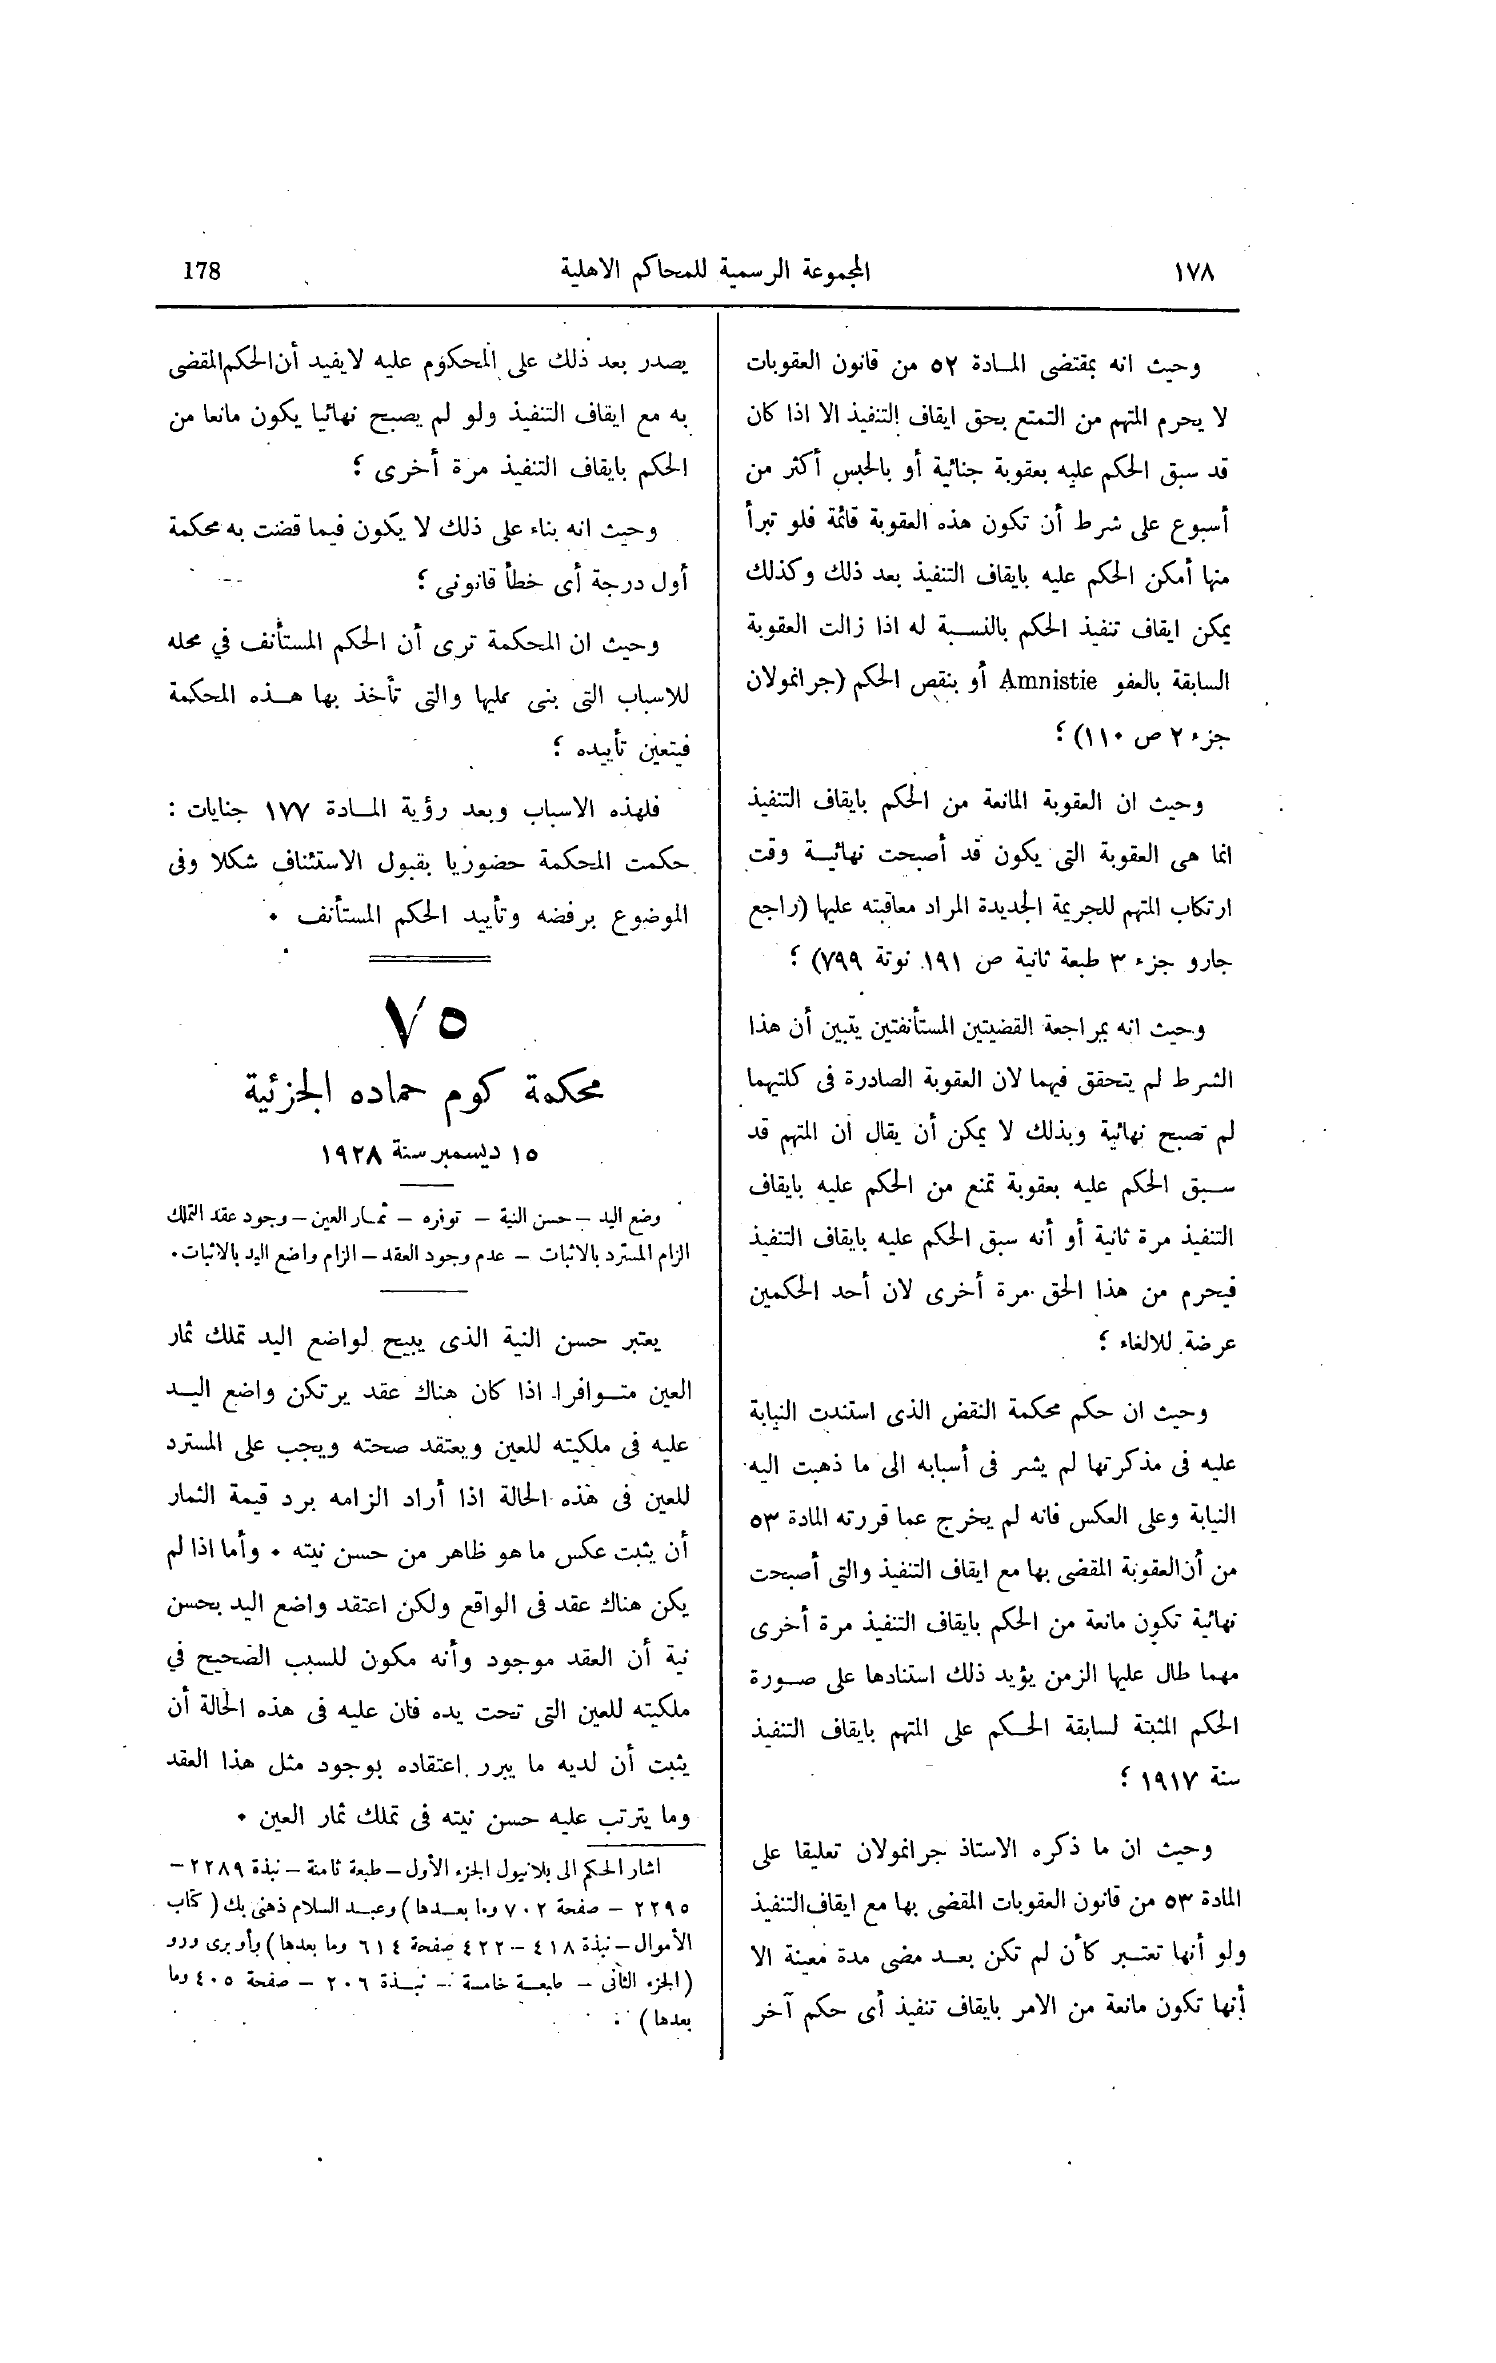 ١٧٨
المجموعة الرسمية للمحاكم الاهلية
178
وحيث انه بمقتضى المادة ٥٢ من قانون العقوبات
لا يحرم المتهم من التمتع بحق ايقاف التنفيذ الا اذا كان
قد سبق الحكم عليه بعقوبة جنائية أو بالحبس أكثر من
أسبوع على شرط أن تكون هذه العقوبة قائمة فلو تبرأ
منها أمكن الحكم عليه بايقاف التنفيذ بعد ذلك وكذلك
يمكن ايقاف تنفيذ الحكم بالنسبة له اذا زالت العقوبة
السابقة بالعفو Amnistie أو بنقض الحكم (جرانمولان
جزء ٢ ص ١١٠) ؛
وحيث ان العقوبة المانعة من الحكم بايقاف التنفيذ
انما هى العقوبة التى يكون قد أصبحت نهائية وقت
ارتكاب المتهم للجريمة الجديدة المراد معاقبته عليها (راجع
جارو جزء ٣ طبعة ثانية ص ١٩١ نوتة ٧٩٩) ؛
وحيث انه بمراجعة القضيتين المستأنفتين يتبين أن هذا
الشرط لم يتحقق فيهما لان العقوبة الصادرة فى كلتيهما
لم تصبح نهائية وبذلك لا يمكن أن يقال ان المتهم قد
سبق الحكم عليه بعقوبة تمنع من الحكم عليه بايقاف
التنفيذ مرة ثانية أو أنه سبق الحكم عليه بايقاف التنفيذ
فيحرم من هذا الحق مرة أخرى لان أحد الحكمين
عرضة للالغاء ؛
وحيث ان حكم محكمة النقض الذى استندت النيابة
عليه فى مذكرتها لم يشر فى أسبابه الى ما ذهبت اليه
النيابة وعلى العكس فانه لم يخرج عما قررته المادة ٥٣
من أن العقوبة المقضى بها مع ايقاف التنفيذ والتى أصبحت
نهائية تكون مانعة من الحكم بايقاف التنفيذ مرة أخرى
مهما طال عليها الزمن يؤيد ذلك استنادها على صورة
الحكم المثبتة لسابقة الحكم على المتهم بايقاف التنفيذ
سنة ١٩١٧ ؛
وحيث ان ما ذكره الاستاذ جرانمولان تعليقا على
المادة ٥٣ من قانون العقوبات المقضى بها مع ايقاف التنفيذ
ولو أنها تعتبر كأن لم تكن بعد مضى مدة معينة الا
أنها تكون مانعة من الامر بايقاف تنفيذ أى حكم آخر
يصدر بعد ذلك على المحكوم عليه لا يفيد أن الحكم المقضى
به مع ايقاف التنفيذ ولو لم يصبح نهائيا يكون مانعا من
الحكم بايقاف التنفيذ مرة أخرى ؛
وحيث انه بناء على ذلك لا يكون فيما قضت به محكمة
أول درجة أى خطأ قانونى ؛
وحيث ان المحكمة ترى أن الحكم المستأنف في محله
للاسباب التى بنى عليها والتى تأخذ بها هذه المحكمة
فيتعين تأييده ؛
فلهذه الاسباب وبعد رؤية المادة ١٧٧ جنايات :
حكمت المحكمة حضوريا بقبول الاستئناف شكلا وفى
الموضوع برفضه وتأييد الحكم المستأنف .
٧٥
محكمة كوم حماده الجزئية
١٥ ديسمبر سنة ١٩٢٨
وضع اليد – حسن النية – توفره – ثمار العين – وجود عقد التملك
الزام المسترد بالاثبات – عدم وجود العقد – الزام واضع اليد بالاثبات.
يعتبر حسن النية الذى يبيح لواضع اليد تملك ثمار
العين متوافرا اذا كان هناك عقد يرتكن واضع اليد
عليه فى ملكيته للعين ويعتقد صحته ويجب على المسترد
للعين فى هذه الحالة اذا أراد الزامه برد قيمة الثمار
أن يثبت عكس ما هو ظاهر من حسن نيته . وأما اذا لم
يكن هناك عقد فى الواقع ولكن اعتقد واضع اليد بحسن
نية أن العقد موجود وأنه مكون للسبب الصحيح في
ملكيته للعين التى تحت يده فان عليه فى هذه الحالة أن
يثبت أن لديه ما يبرر اعتقاده بوجود مثل هذا العقد
وما يترتب عليه حسن نيته فى تملك ثمار العين .
اشار الحكم الى بلانيول الجزء الأول – طبعة ثامنة – نبذة ٢٢٨٩ –
٢٢٩٥ – صفحة ٧٠٢ وما بعدها) وعبد السلام ذهنى بك (كتاب
الأموال – نبذة ٤١٨ – ٤٢٢ صفحة ٦١٤ وما بعدها) وأوبرى ورو
(الجزء الثانى – طبعة خامسة – نبذة ٢٠٦ – صفحة ٤٠٥ وما
بعدها) .